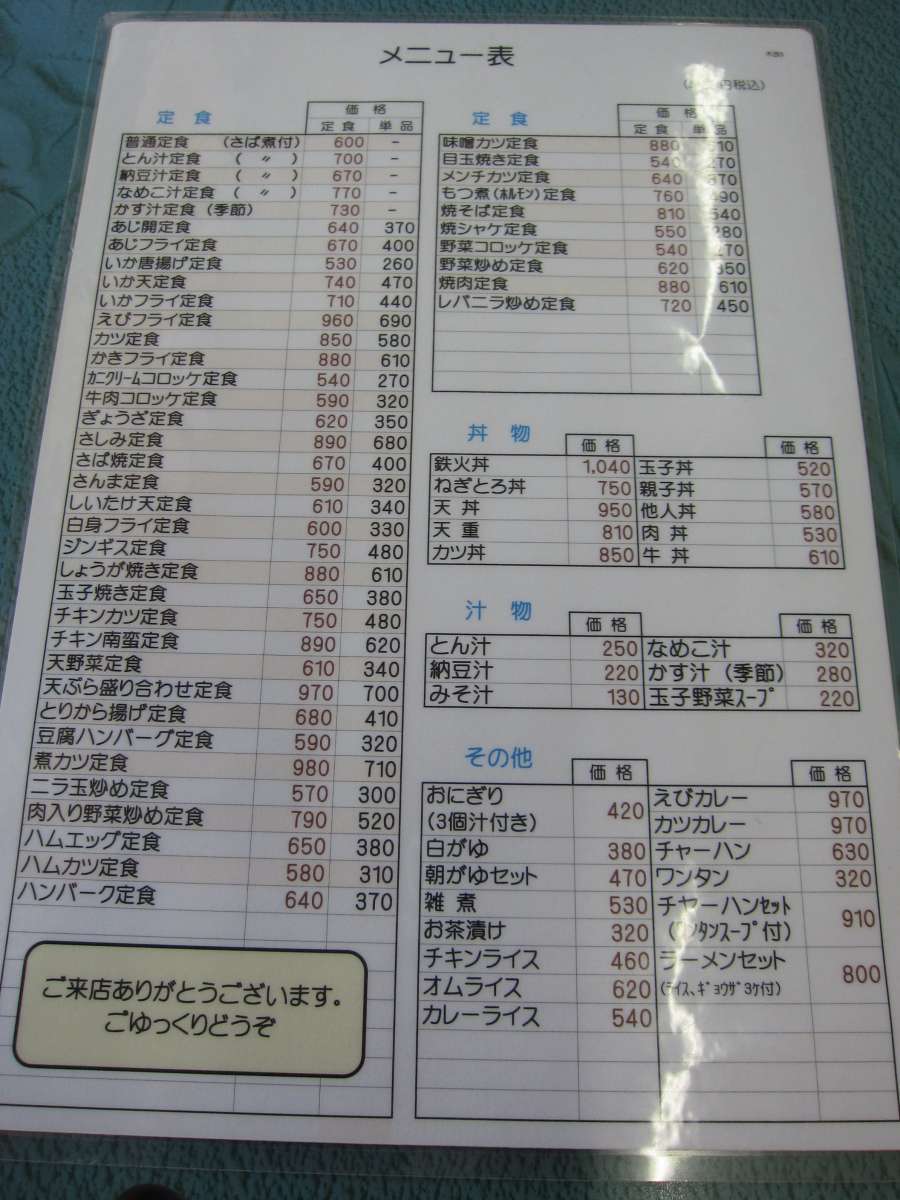 メニュー表
円税込)
定食
価格
定食 単品
普通定食 (さば煮付) 600 -
とん汁定食 ( 〃 ) 700 -
納豆汁定食 ( 〃 ) 670 -
なめこ汁定食 ( 〃 ) 770 -
かす汁定食 (季節) 730 -
あじ開定食 640 370
あじフライ定食 670 400
いか唐揚げ定食 530 260
いか天定食 740 470
いかフライ定食 710 440
えびフライ定食 960 690
カツ定食 850 580
かきフライ定食 880 610
ｶﾆｸﾘｰﾑコロッケ定食 540 270
牛肉コロッケ定食 590 320
ぎょうざ定食 620 350
さしみ定食 890 680
さば焼定食 670 400
さんま定食 590 320
しいたけ天定食 610 340
白身フライ定食 600 330
ジンギス定食 750 480
しょうが焼き定食 880 610
玉子焼き定食 650 380
チキンカツ定食 750 480
チキン南蛮定食 890 620
天野菜定食 610 340
天ぷら盛り合わせ定食 970 700
とりから揚げ定食 680 410
豆腐ハンバーグ定食 590 320
煮カツ定食 980 710
ニラ玉炒め定食 570 300
肉入り野菜炒め定食 790 520
ハムエッグ定食 650 380
ハムカツ定食 580 310
ハンバーク定食 640 370
ご来店ありがとうございます。
ごゆっくりどうぞ
定食
価格
定食 単品
味噌カツ定食 880 610
目玉焼き定食 540 270
メンチカツ定食 640 370
もつ煮(ﾎﾙﾓﾝ)定食 760 490
焼そば定食 810 540
焼シャケ定食 550 280
野菜コロッケ定食 540 270
野菜炒め定食 620 350
焼肉定食 880 610
レバニラ炒め定食 720 450
丼物
価格 価格
鉄火丼 1,040 玉子丼 520
ねぎとろ丼 750 親子丼 570
天丼 950 他人丼 580
天重 810 肉丼 530
カツ丼 850 牛丼 610
汁物
価格 価格
とん汁 250 なめこ汁 320
納豆汁 220 かす汁 (季節) 280
みそ汁 130 玉子野菜ｽｰﾌﾟ 220
その他
価格
おにぎり
(3個汁付き) 420
白がゆ 380
朝がゆセット 470
雑煮 530
お茶漬け 320
チキンライス 460
オムライス 620
カレーライス 540
価格
えびカレー 970
カツカレー 970
チャーハン 630
ワンタン 320
チャーハンｾｯﾄ
(ﾜﾝﾀﾝｽｰﾌﾟ付) 910
ラーメンセット
(ﾗｲｽ、ｷﾞｮｳｻﾞ3ｹ付) 800